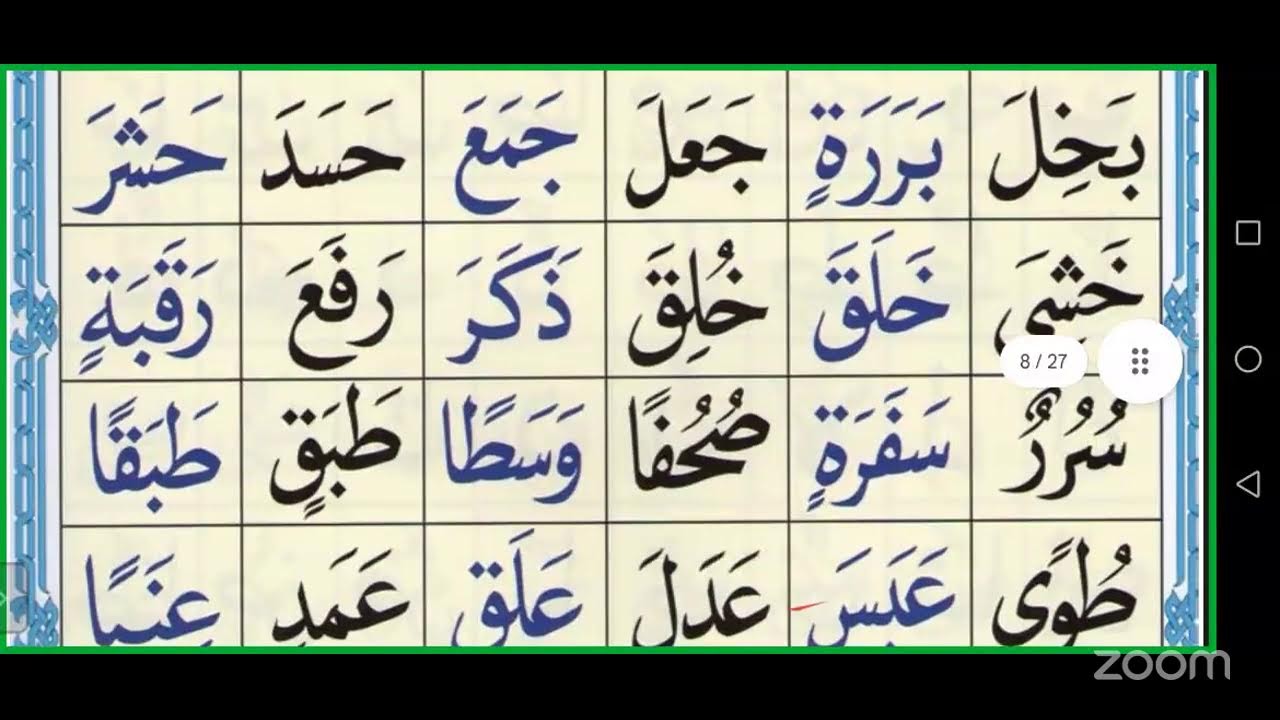 بَخِلَ بَرَرَةٍ جَعَلَ جَمَعَ حَسَدَ حَشَرَ
خَشِیَ خَلَقَ خُلِقَ ذَکَرَ رَفَعَ رَقَبَةٍ
8 / 27
سُرُرٌ سَفَرَةٍ صُحُفًا وَسَطًا طَبَقٍ طَبَقًا
طُوًی عَبَسَ عَدَلَ عَلَقٍ عَمَدٍ عِنَبًا
zoom